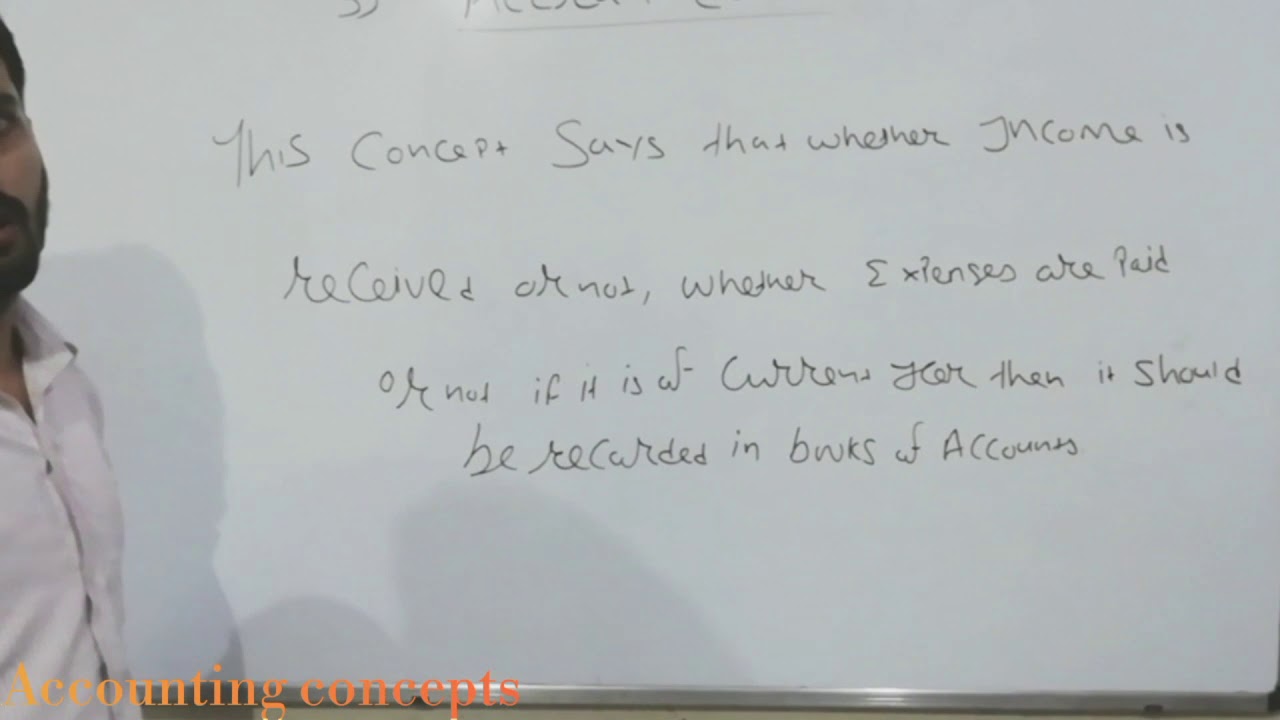 This Concept Says that whether Income is
received or not, whether Expenses are Paid
or not if it is of Current year then it should
be recorded in books of Accounts
Accounting concepts